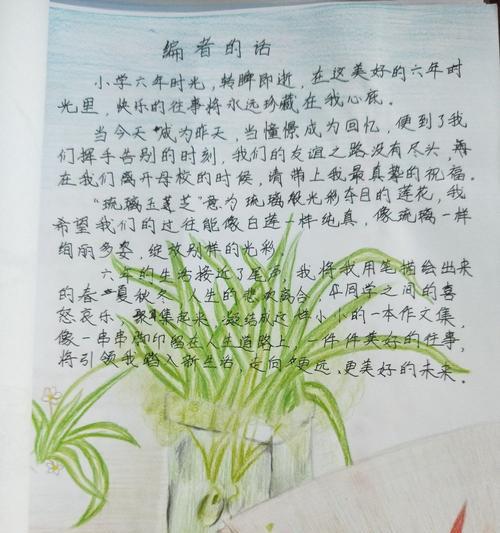 编者的话
小学六年时光，转眸即逝，在这美好的六年时
光里，快乐的往事将永远珍藏在我心底。
当今天成为昨天，当憧憬成为回忆，便到了我
们挥手告别的时刻，我们的友谊之路没有尽头，每
在我们离开母校的时候，请带上我最真挚的祝福。
“琉璃玉菱芝”意为琉璃般光彩夺目的莲花，我
希望我们的过往能像白莲一样纯真，像琉璃一样
绚丽多姿，绽放别样的光彩。
六年的生活接近了尾声，我将我用笔描绘出来
的春夏秋冬、人生的悲欢离合、同学之间的喜
怒哀乐，聚集起来，凝结成这样小小的一本作文集，
像一串串脚印留在人生道路上，一件件美好的往事，
将引领我踏入新生活，走向更远、更美好的未来。